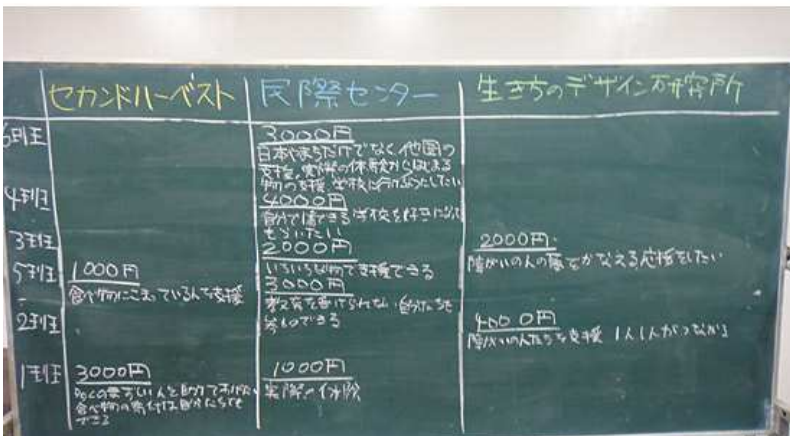 セカンドハーベスト 民際センター 生き方のデザイン研究所
6班
3000円
日本やまちだけでなく他国の
支援、実際の体験からはじまる
物の支援、学校に行けるようにしたい
4班
4000円
学校を好きになって
もらいたい
3班
2000円
いろいろな物で支援できる
2000円
障がいの人の夢をかなえる応援をしたい
5班
1000円
食べ物にこまっている人を支援
3000円
教育を受けられない 自分たちも
できる
2班
4000円
障がいの人たちを支援 1人1人がつながる
1班
3000円
まずしい人を助けてあげたい
食べ物の寄付は自分たちでも
できる
1000円
実際の体験